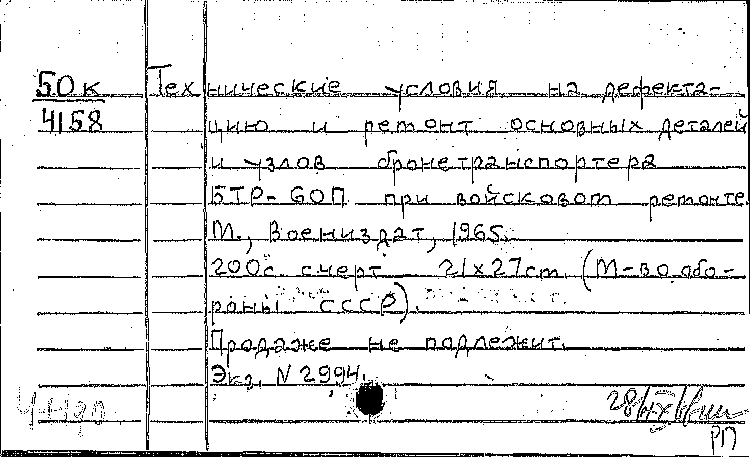 50к Технические условия на дефекта-
4158 цию и ремонт основных деталей
и узлов бронетранспортера
БТР-60П при войсковом ремонте.
М., Воениздат, 1965.
200с. с черт. 21х27см. (М-во обо-
роны СССР).
Продаже не подлежит.
Экз. N 2994.
РП